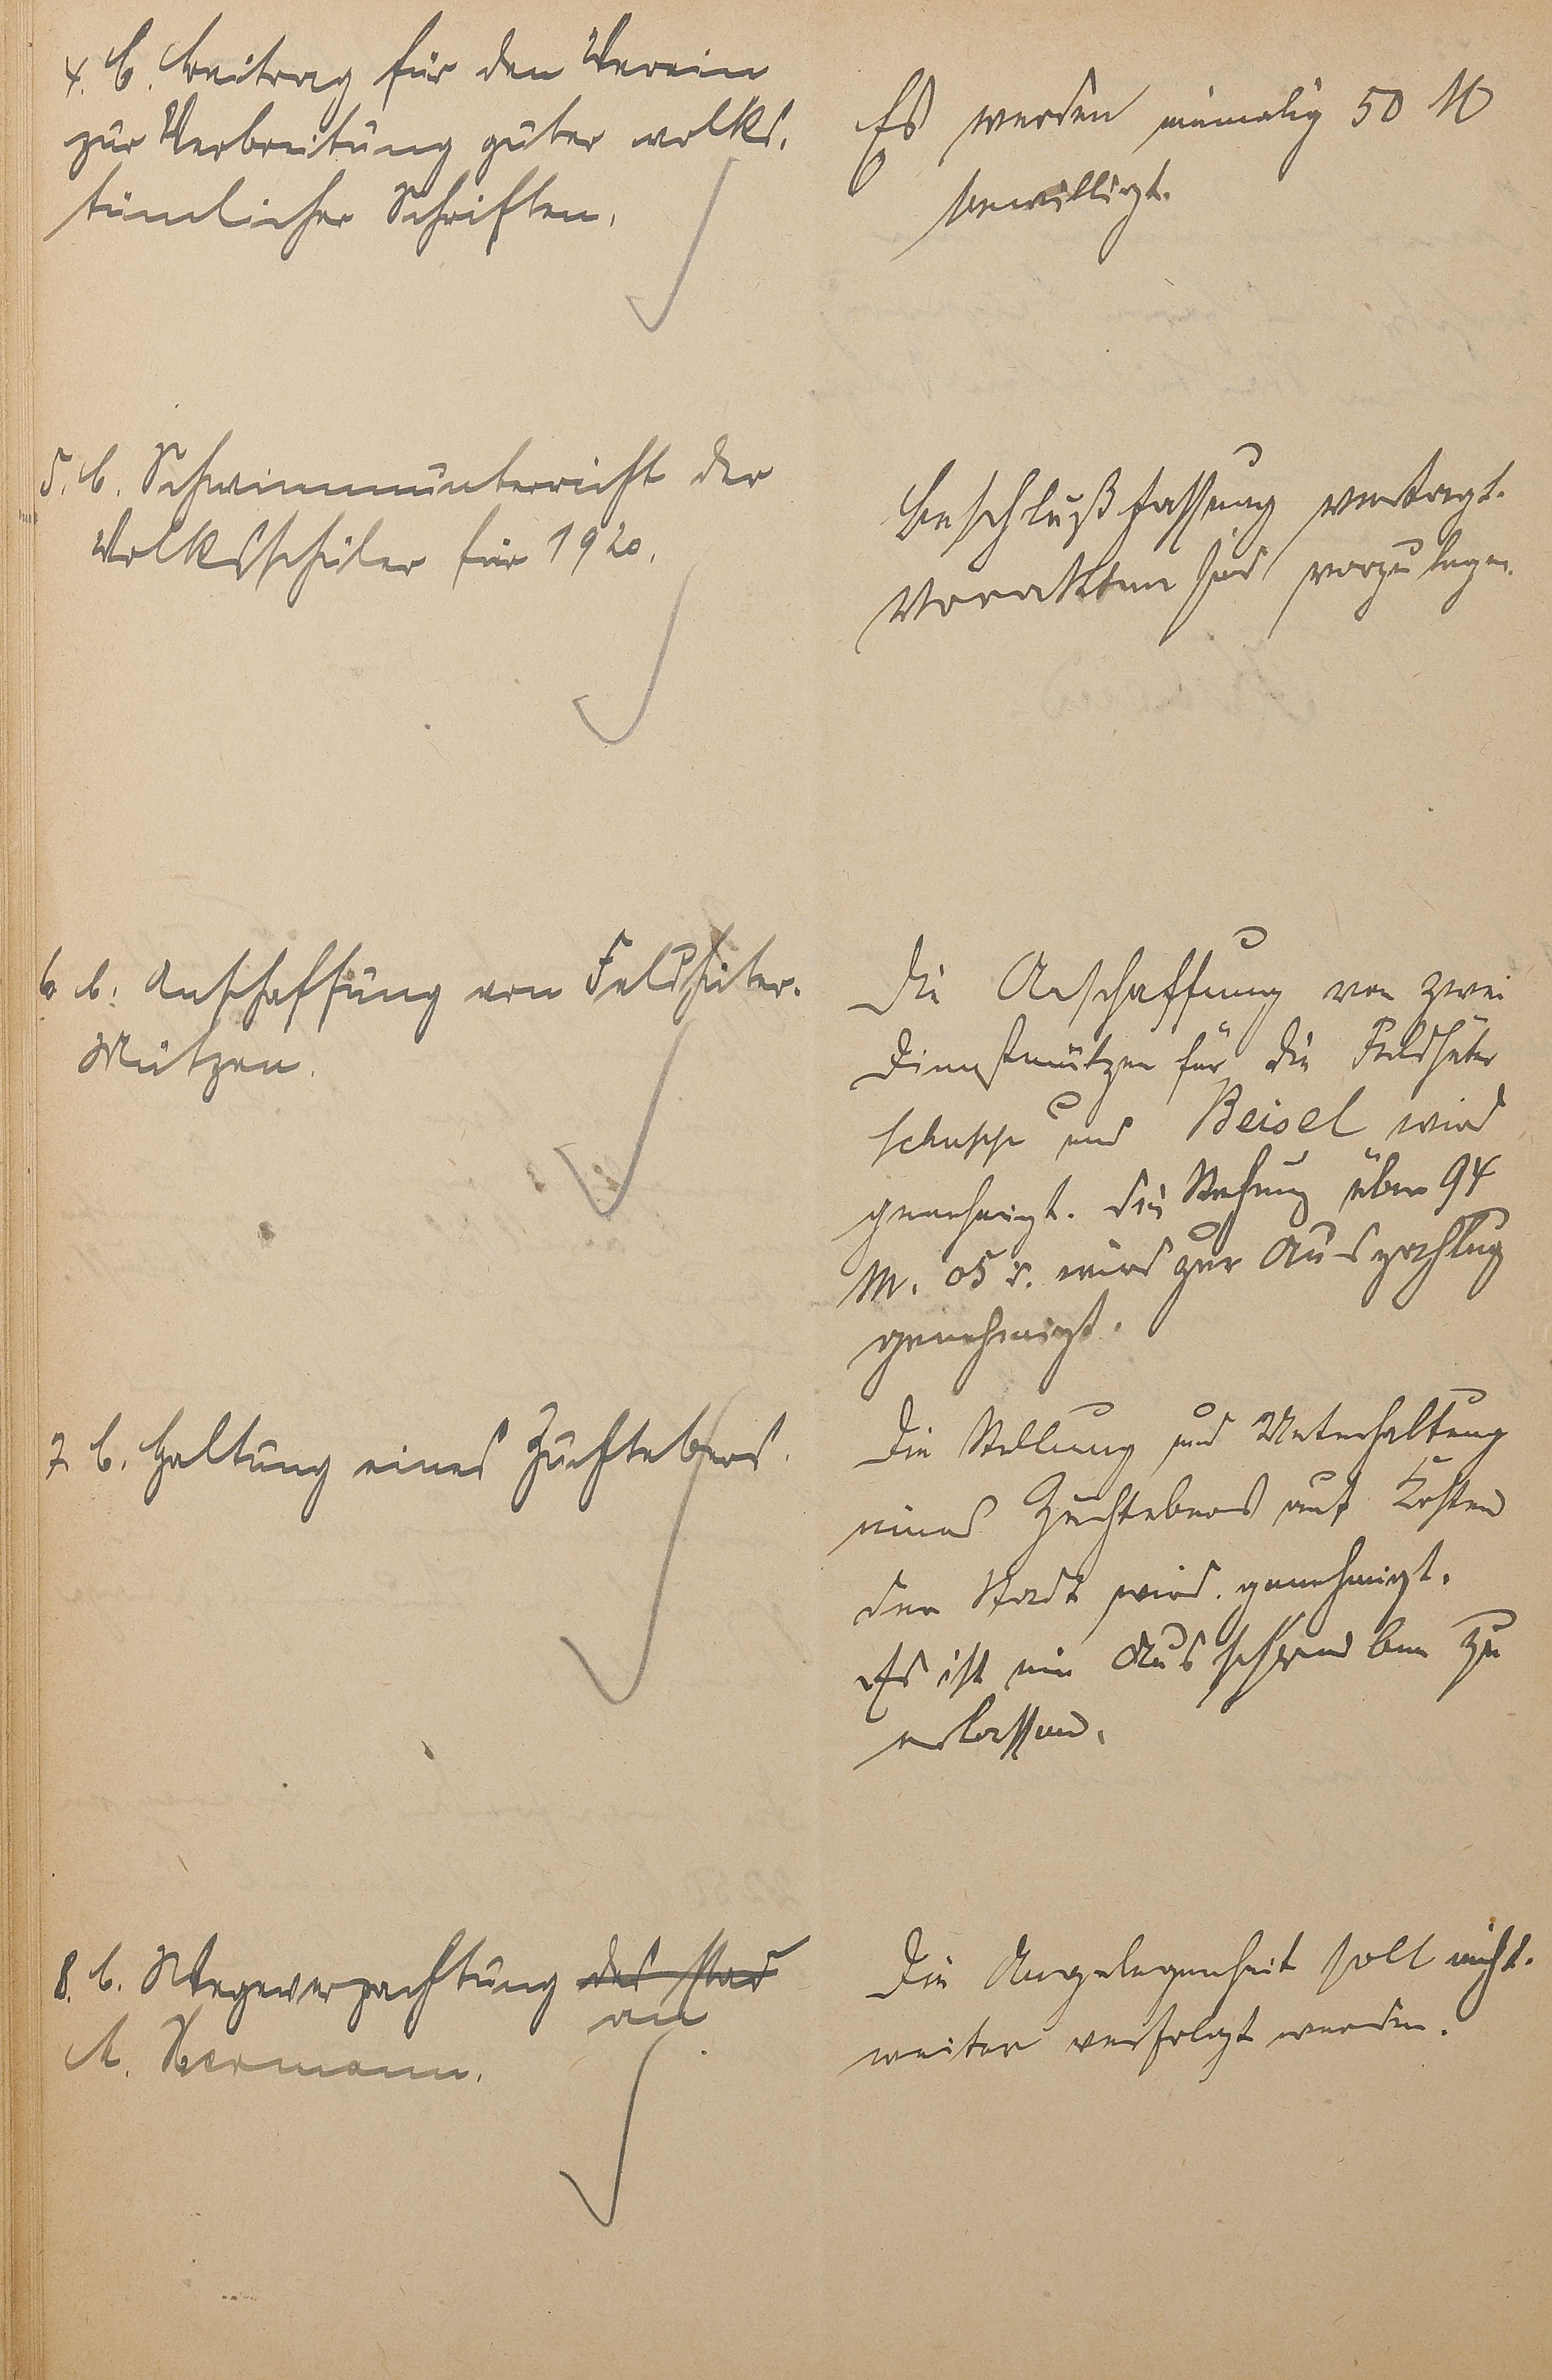 4. b. Beitrag für den Verein
zur Verbreitung guter volks-
tümlicher Schriften.
Es werden einmalig 50 M
bewilligt.
5. b. Schwimmunterricht der
Volksschüler für 1920.
Beschlußfassung vertagt.
Vorakten sind vorzulegen.
6 b. Anschaffung von Feldhüter-
Mützen.
Die Anschaffung von zwei
Dienstmützen für die Feldhüter
und Beisel wird
genehmigt. Die Rechnung über 94
M. 05 d. wird zur Auszahlung
genehmigt.
7. b. Haltung eines Zuchtebers.
Die Stellung und Unterhaltung
eines Zuchtebers auf Kosten
der Stadt wird genehmigt.
Es ist ein Ausschreiben zu
erlassen.
8. b. Wegeverpachtung des Stad
an
A. Hermann.
Die Angelegenheit soll nicht
weiter verfolgt werden.